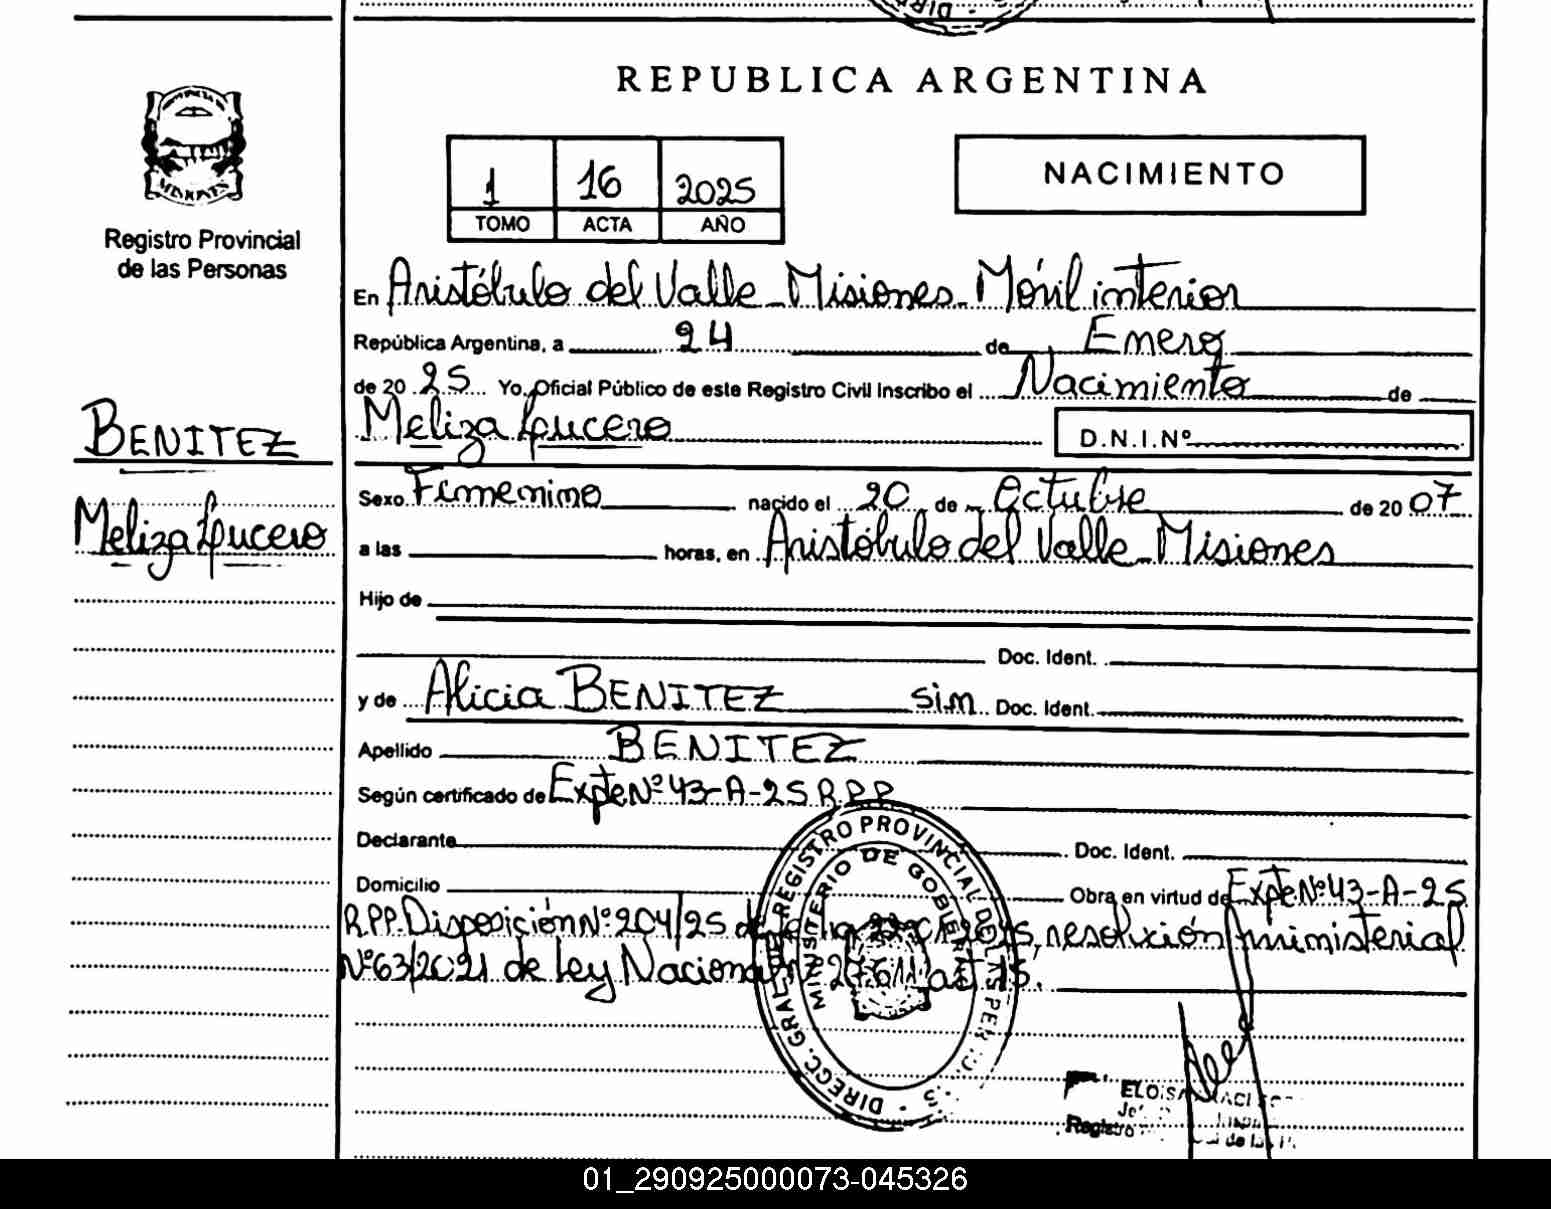 REPUBLICA ARGENTINA
PROVINCIA DE
MISIONES
Registro Provincial
de las Personas
1 16 2025
TOMO ACTA AÑO
NACIMIENTO
En Aristóbulo del Valle - Misiones - Móvil interior
República Argentina, a 24 de Enero
de 20 25 Yo, Oficial Público de este Registro Civil Inscribo el Nacimiento de
Meliza Lucero D.N.I.Nº
BENITEZ
Meliza Lucero
Sexo Femenino nacido el 20 de Octubre de 20 07
a las horas, en Aristóbulo del Valle - Misiones
Hijo de
Doc. Ident.
y de Alicia BENITEZ sin Doc. Ident.
Apellido BENITEZ
Según certificado de Expte Nº 43-A-25 R.P.P.
Declarante Doc. Ident.
Domicilio Obra en virtud de Expte Nº 43-A-25
R.P.P. Disposición Nº 204/25 de resolución ministerial
Nº 63/2021 de Ley Nacional Nº 27.611 art 15.
DIRECC. GRAL. DEL REGISTRO PROVINCIAL DE LAS PERSONAS
MINISTERIO DE GOBIERNO
ELOISA
Registro
01_290925000073-045326